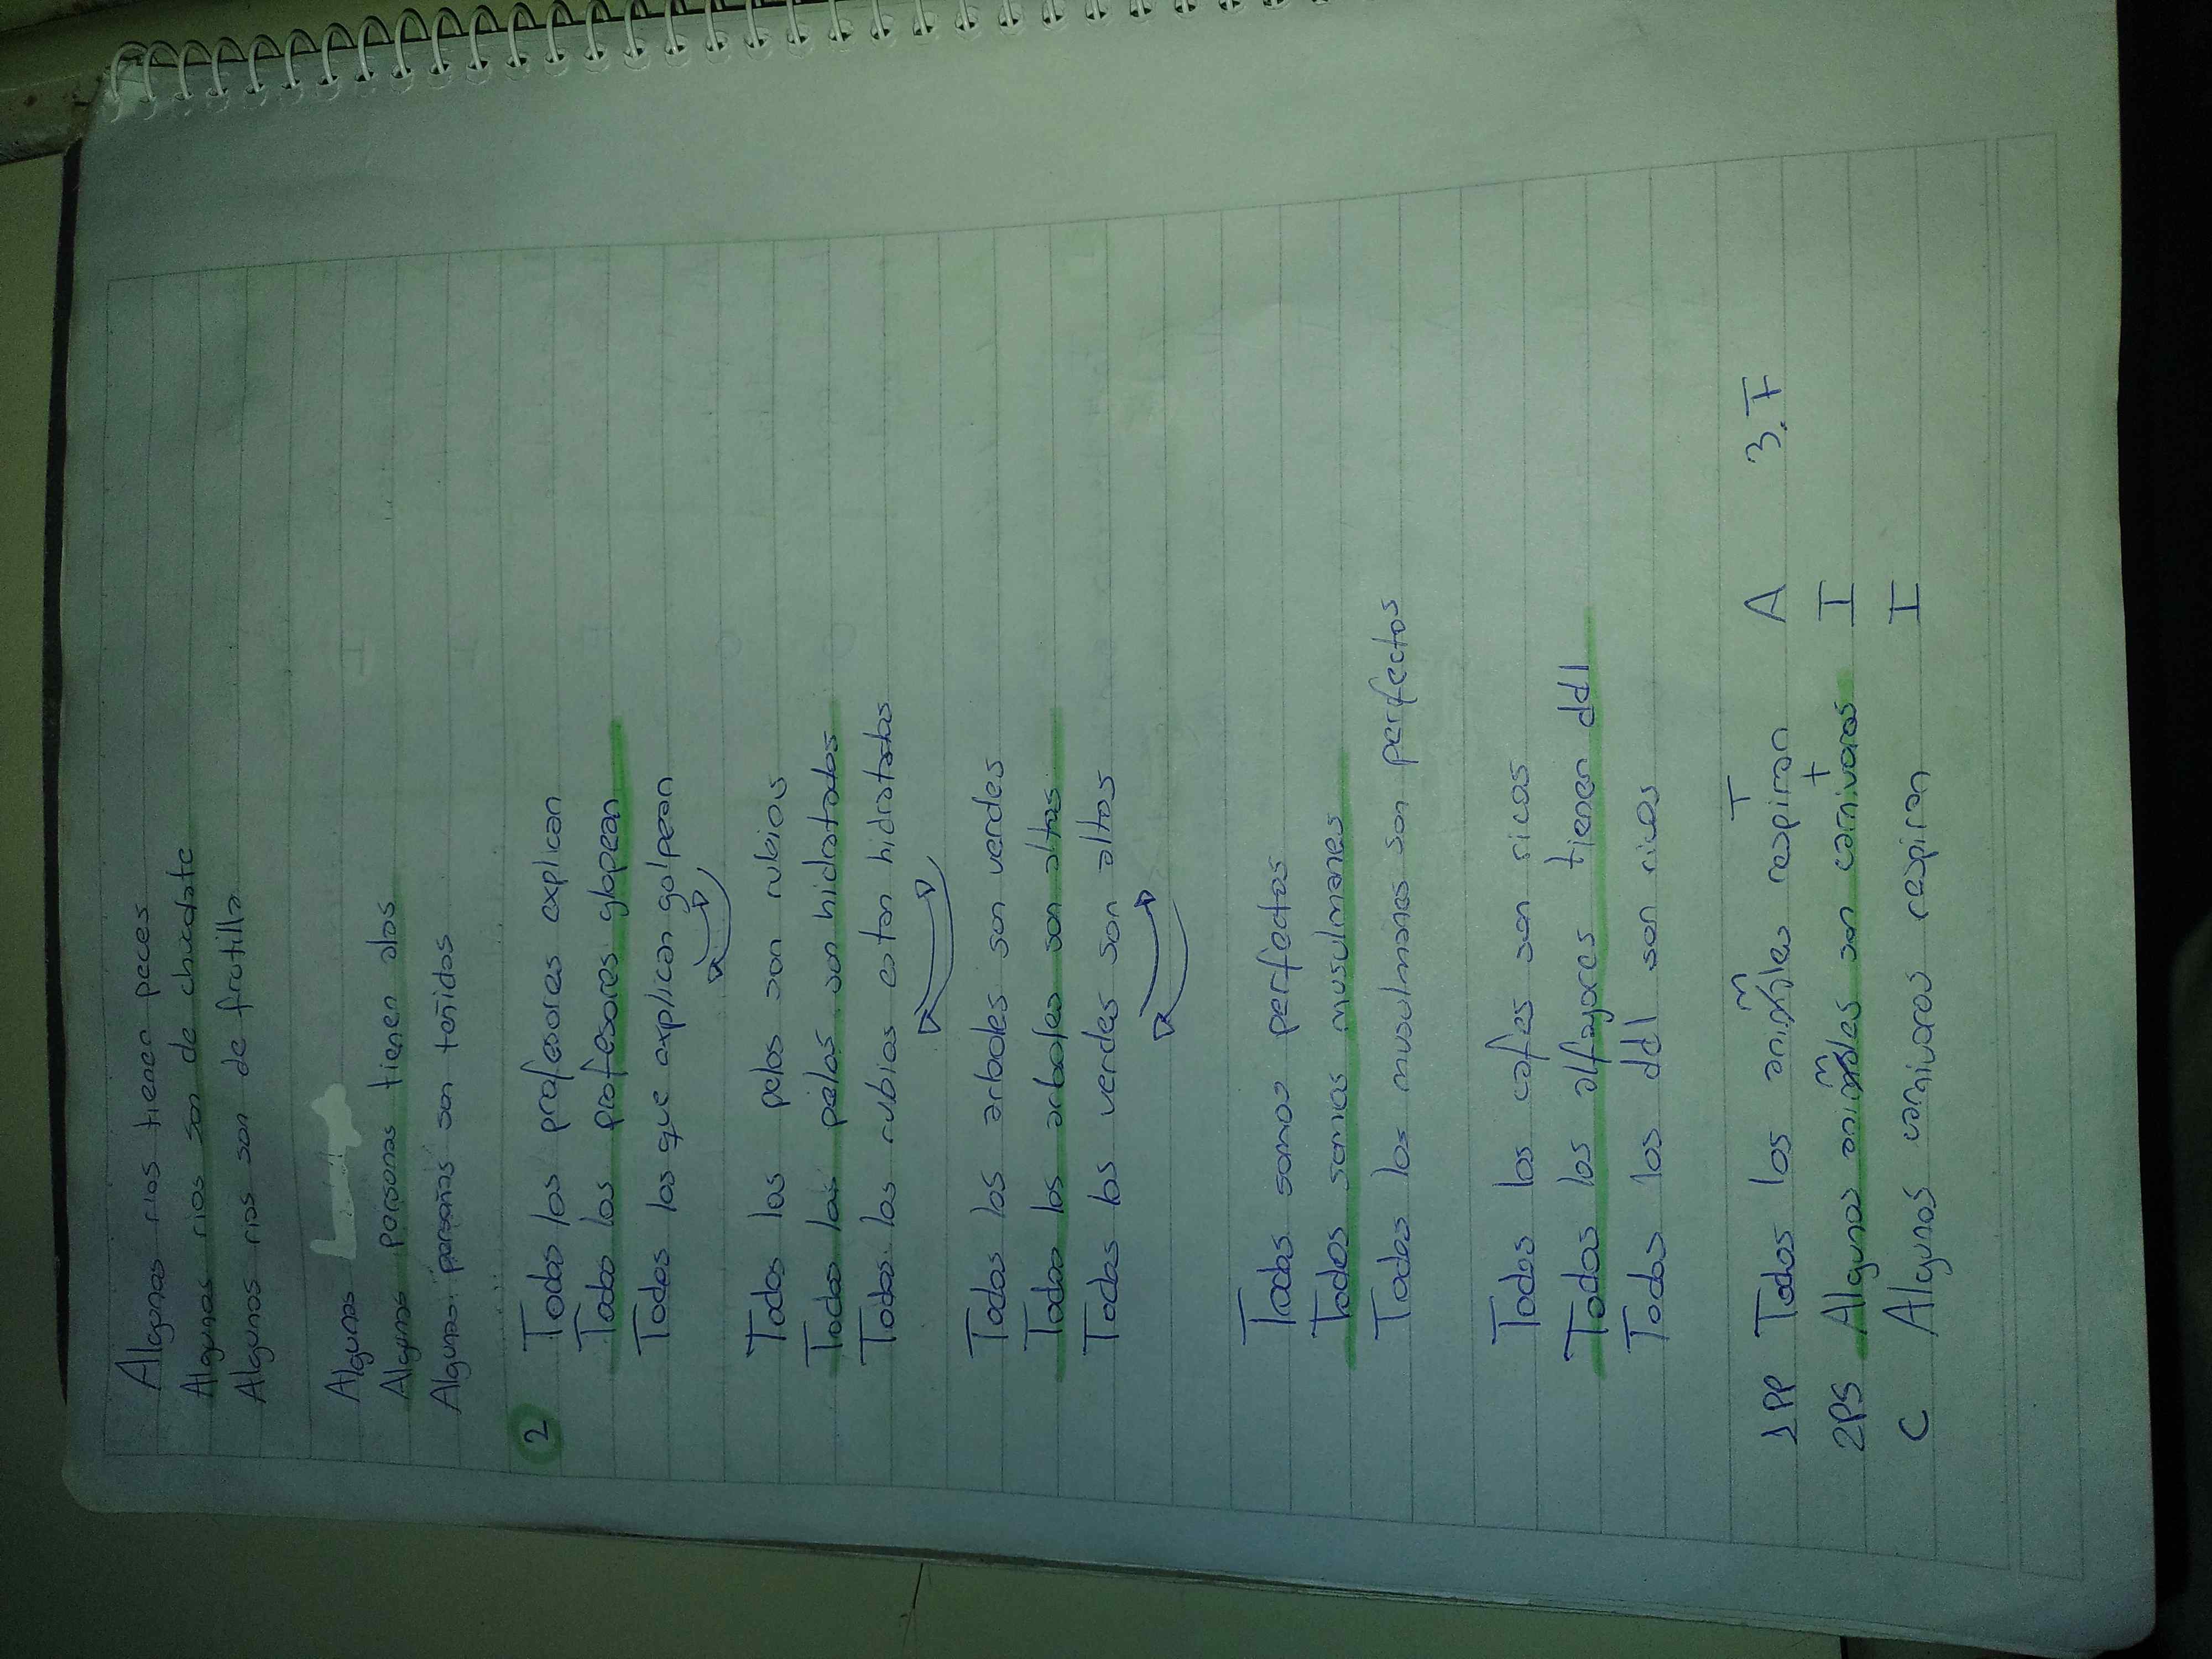 Algunos rios tienen peces
Algunos rios son de chocolate
Algunos rios son de frutilla
Algunas
Algunas personas tienen alas
Algunas personas son teñidos
2 Todos los profesores explican
Todos los profesores glopean
Todos los que explican golpean
Todos los pelos son rubios
Todos los pelos son hidratados
Todos los rubios estan hidratados
Todos los arboles son verdes
Todos los arboles son altos
Todos los verdes son altos
Todos somos perfectos
Todos somos musulmanes
Todos los musulmanes son perfectos
Todos los cafes son ricos
Todos los alfajores tienen ddl
Todos los ddl son ricos
1PP Todos los animales respiran A 3.F
2PS Algunos animales son carnivoros I
C Algunos carnivoros respiran I